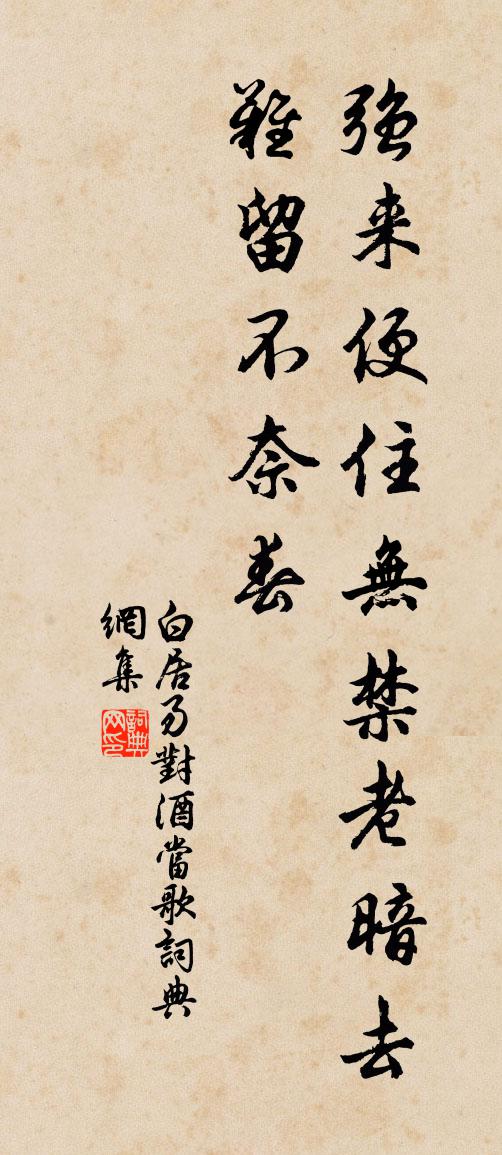 强来便住無禁老暗去
難留不奈春
白居易對酒當歌詞典
網集
詞典
网印